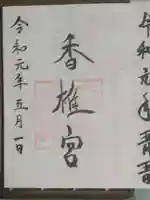 令和元年
香椎宮
令和元年五月一日